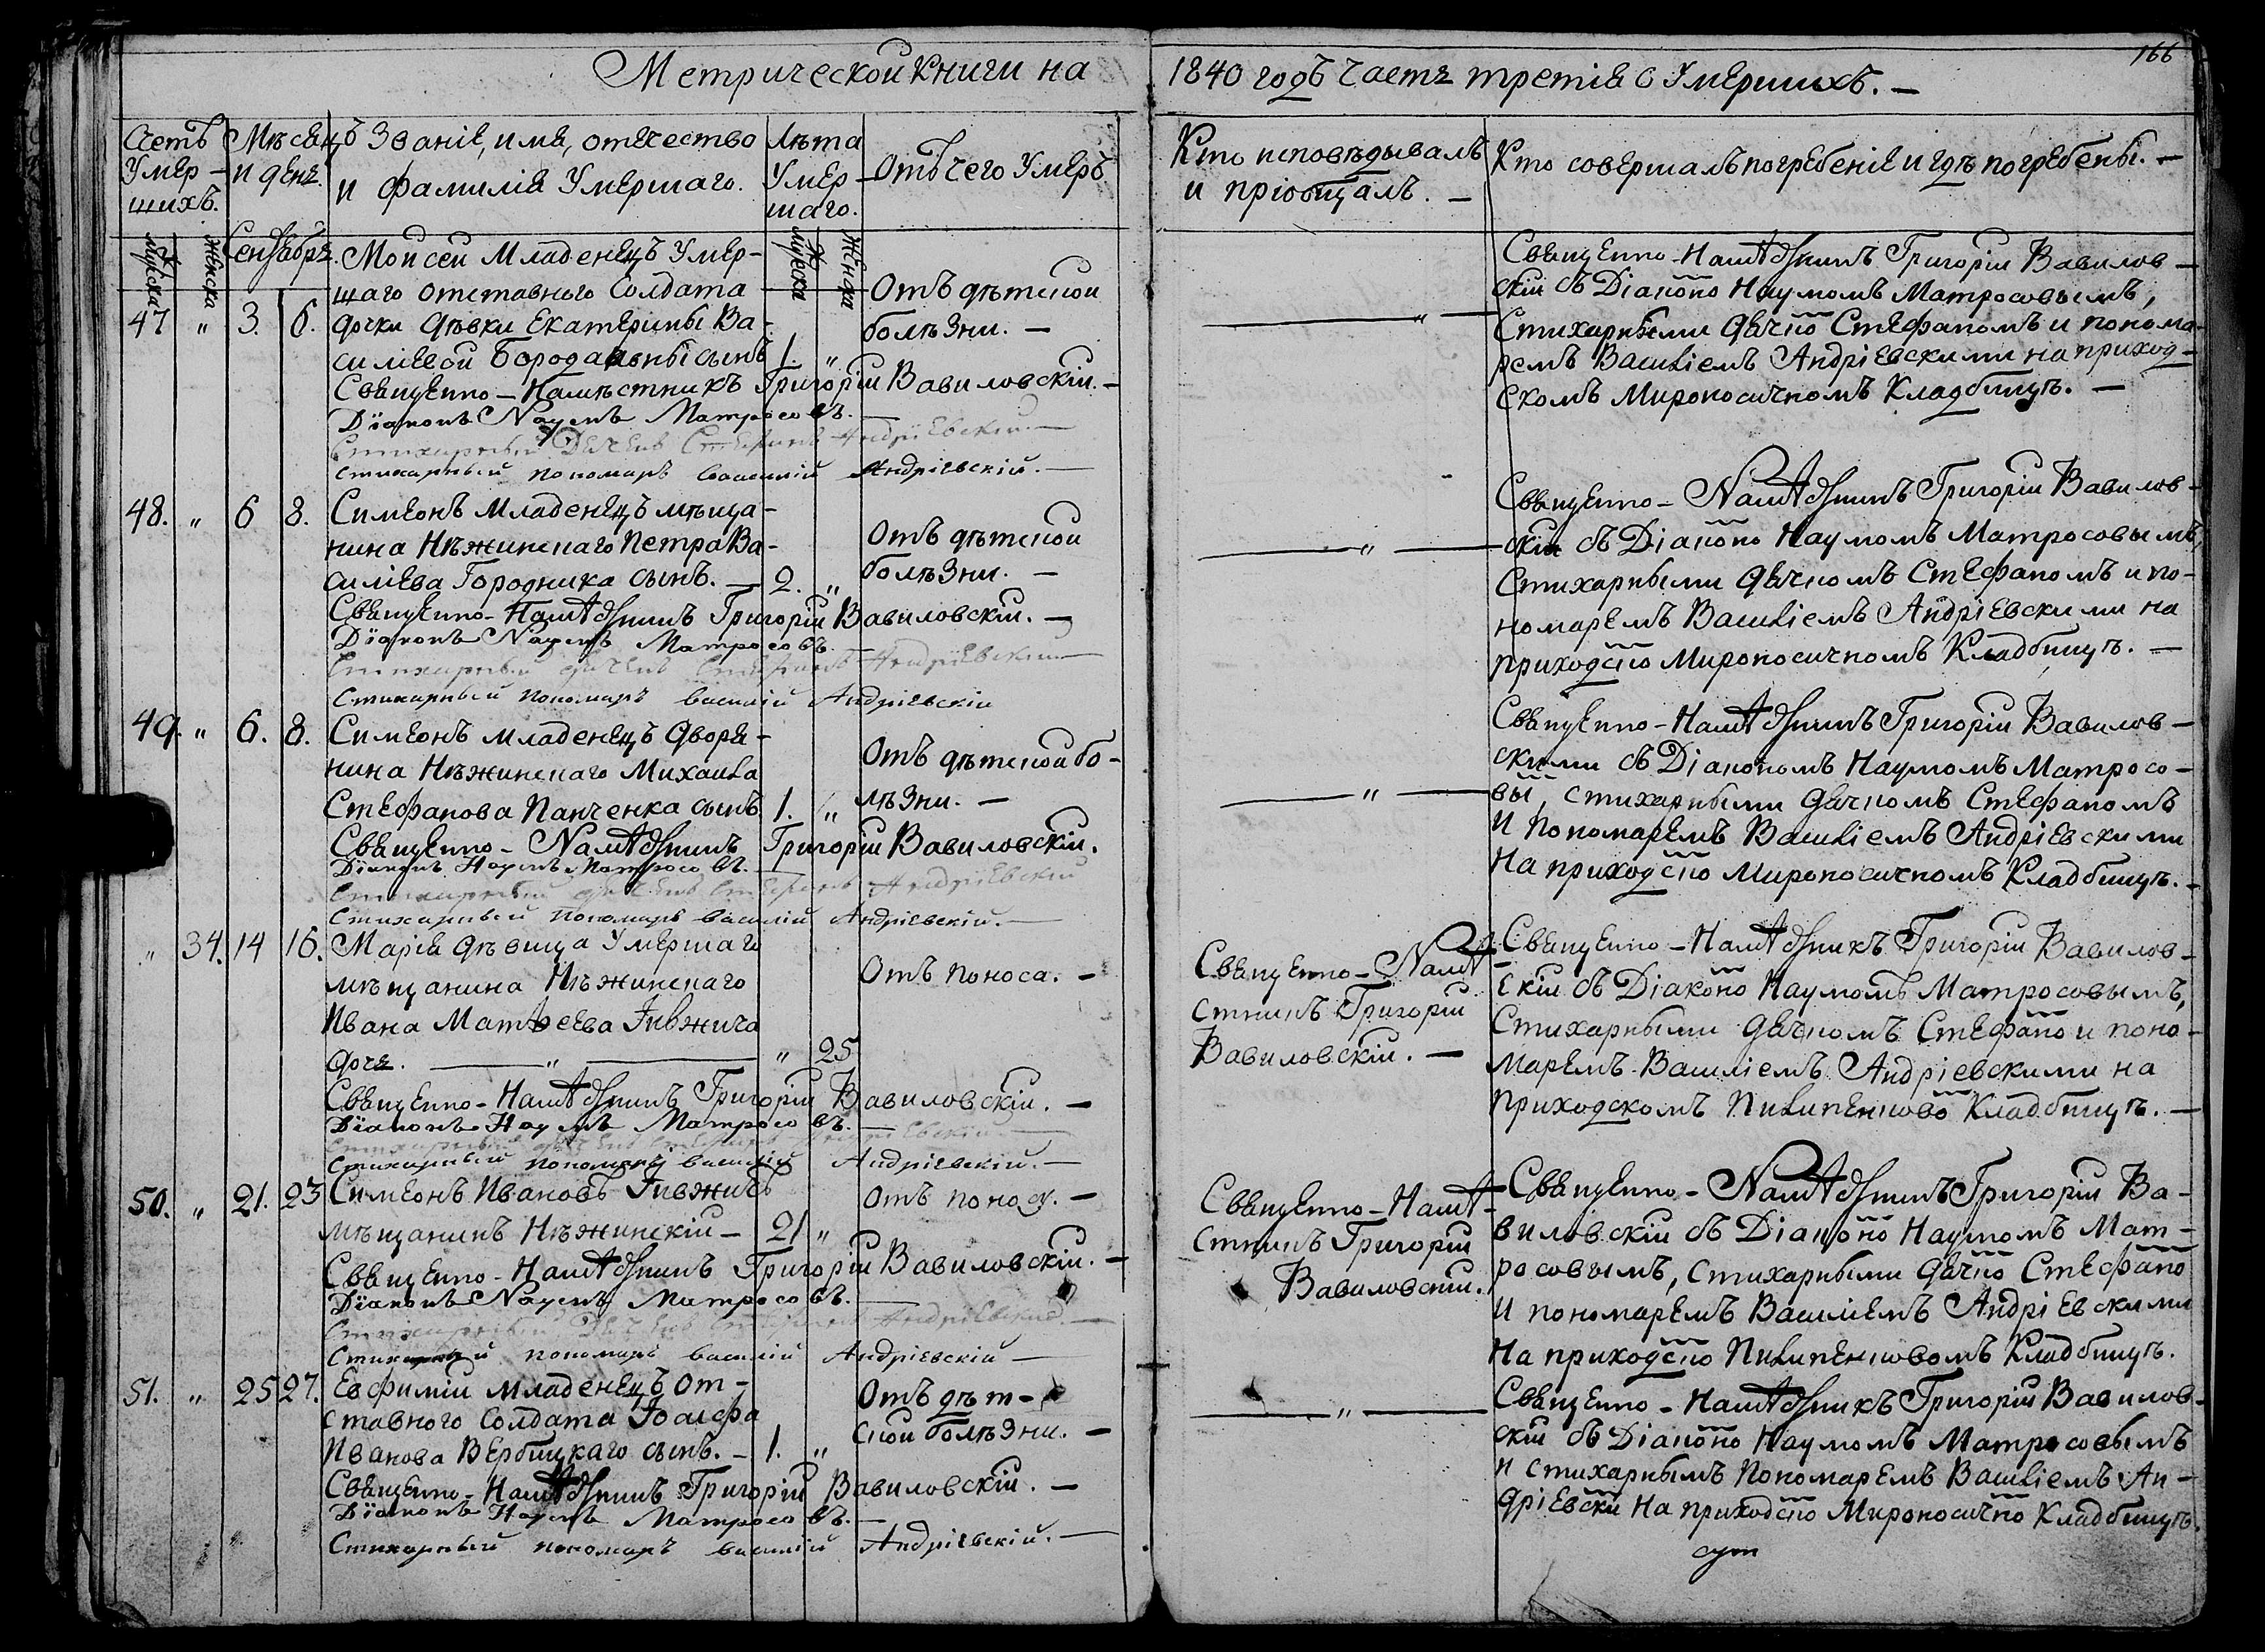 Метрической книги на
1840 годъ часть третія о Умершихъ. —
166
Счетъ Умер-
шихъ.
Мѣсяцъ
и день.
Званіе, имя, отечество
и фамилія Умершаго.
Лѣта
Умер-
шаго.
Отъ чего Умеръ
Кто исповѣдывалъ
и пріобщалъ. —
Кто совершалъ погребеніе и гдѣ погребены. —
Мужска
Женска
Сентябрь.
Мужска
Женска
47 " 3. 6.
Моисей Младенецъ Умер-
шаго отставного Солдата
дочки дѣвки Екатерины Ва-
силіевой сынъ 1. "
Отъ дѣтской
болѣзни. —
Священно-Намѣстникъ Григорій Вавиловскій. —
Діаконъ Наумъ Матросовъ. —
Стихарный Дячекъ Стефанъ Андріевскій. —
Стихарный пономарь Василій Андріевскій. —
— " —
Священно-Намѣстникъ Григорій Вавилов-
скій съ Діакопо Наумомъ Матросовымъ,
Стихарными дячко Стефаномъ и понома-
ремъ Василіемъ Андріевскими на приход-
скомъ Мироносичномъ Кладбищѣ. —
48. " 6 8.
Симеонъ Младенецъ мѣща-
нина Нѣжинскаго Петра Ва-
силіева Городника сынъ. — 2. "
Отъ дѣтской
болѣзни. —
Священно-Намѣстникъ Григорій Вавиловскій. —
Діаконъ Наумъ Матросовъ. —
Стихарный дячекъ Стефанъ Андріевскій —
Стихарный пономарь Василій Андріевскій
— " —
Священно-Намѣстникъ Григорій Вавилов-
скій съ Діаконо Наумомъ Матросовымъ,
Стихарными дячкомъ Стефаномъ и по-
номаремъ Василіемъ Андріевскими на
приходско Мироносичномъ Кладбищѣ. —
49. " 6. 8.
Симеонъ младенецъ дворя-
нина Нѣжинскаго Михаила
Стефанова Панченка сынъ 1. "
Отъ дѣтской бо-
лѣзни. —
Священно-Намѣстникъ Григорій Вавиловскій.
Діаконъ Наумъ Матросовъ. —
Стихарный дячекъ Стефанъ Андріевскій
Стихарный пономарь Василій Андріевскій. —
— " —
Священно-Намѣстникъ Григорій Вавилов-
скими съ Діакономъ Наумомъ Матросо-
вы, стихарными дячкомъ Стефаномъ
и пономаремъ Василіемъ Андріевскими
на приходско Мироносичномъ Кладбищѣ. —
" 34. 14 16.
Марія дѣвица Умершаго
мѣщанина Нѣжинскаго
Ивана Матѳеева Гивжича
дочь. — " — " 25
Отъ поноса. —
Священно-Намѣстникъ Григорій Вавиловскій. —
Діаконъ Наумъ Матросовъ. —
Стихарный дячекъ Стефанъ Андріевскій —
Стихарный пономарь Василій Андріевскій. —
Священно-Намѣ-
стникъ Григорій
Вавиловскій. —
Священно-Намѣстникъ Григорій Вавилов-
скій съ Діаконо Наумомъ Матросовымъ,
Стихарными дячкомъ Стефано и поно-
маремъ Василіемъ Андріевскими на
приходскомъ Пилипенково Кладбищѣ. —
50. " 21. 23
Симеонъ Ивановъ Гивжичъ
мѣщанинъ Нѣжинскій — 21 "
Отъ поносу. —
Священно-Намѣстникъ Григорій Вавиловскій. —
Діаконъ Наумъ Матросовъ. —
Стихарный Дячекъ Стефанъ Андріевскій. —
Стихарный пономарь Василій Андріевскій —
Священно-Намѣ-
стникъ Григорій
Вавиловскій.
Священно-Намѣстникъ Григорій Ва-
виловскій съ Діаконо Наумомъ Мат-
росовымъ, стихарными дячко Стефано
и пономаремъ Василіемъ Андріевскими
на приходско Пилипенковомъ Кладбищѣ.
51. " 25 27.
Евфимій младенецъ от-
ставного солдата Іоасефа
Иванова Вербицкаго сынъ. — 1. "
Отъ дѣт-
ской болѣзни. —
Священно-Намѣстникъ Григорій Вавиловскій. —
Діаконъ Наумъ Матросовъ. —
Стихарный пономарь Василій Андріевскій. —
— " —
Священно-Намѣстникъ Григорій Вавилов-
скій съ Діаконо Наумомъ Матросовымъ
и стихарнымъ Пономаремъ Василіемъ Ан-
дріевски на приходско Мироносично Кладбищѣ.